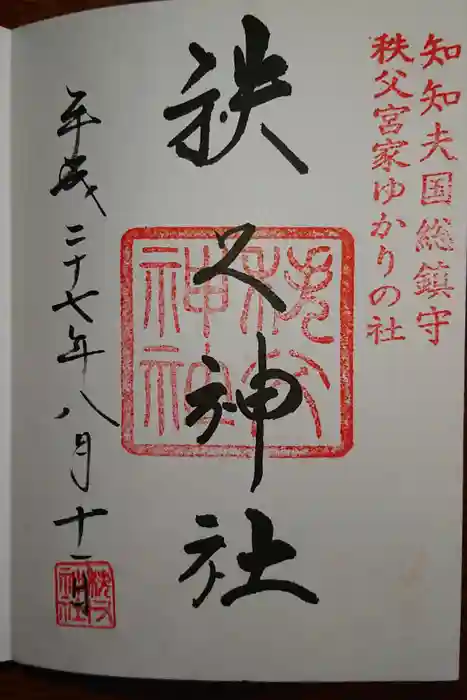 知知夫国総鎮守
秩父宮家ゆかりの社
秩父神社
秩父
神社
平成二十七年八月十一日
秩父
神社